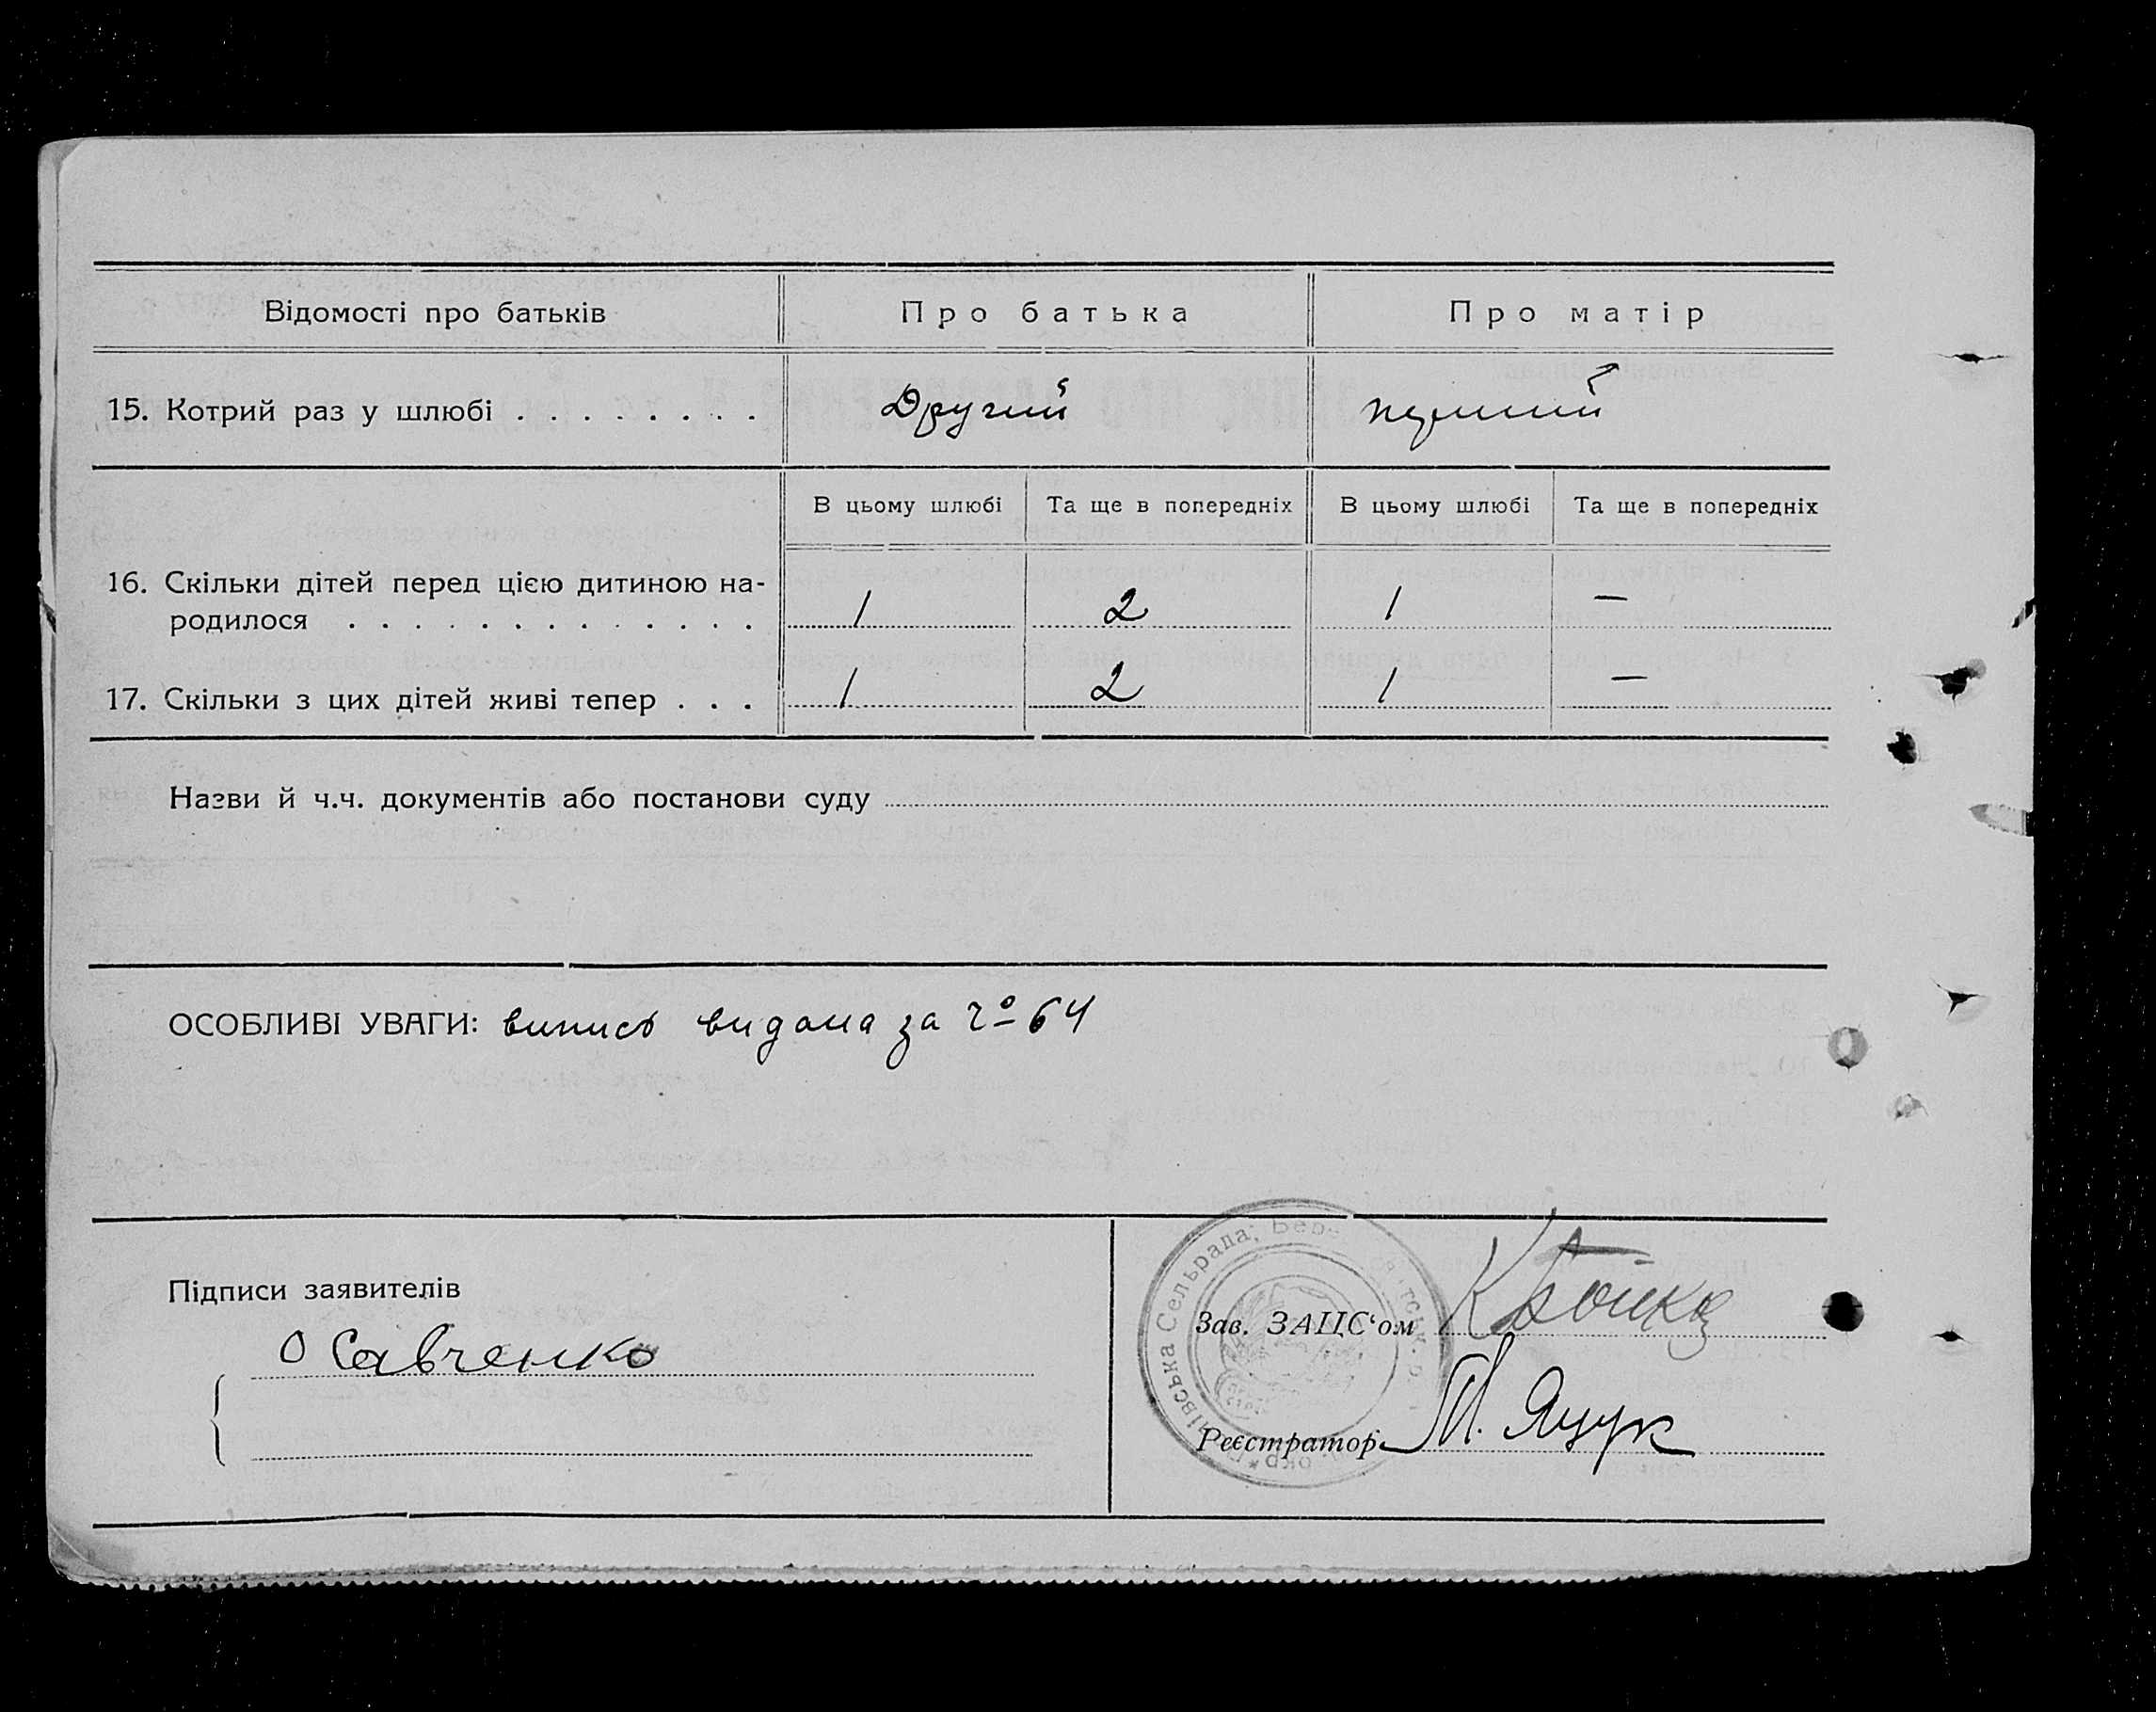 Відомості про батьків Про батька Про матір
15. Котрий раз у шлюбі . . . . . . . . Другий перший
В цьому шлюбі Та ще в попередніх В цьому шлюбі Та ще в попередніх
16. Скільки дітей перед цією дитиною на-
родилося . . . . . . . . . . . . . 1 2 1 —
17. Скільки з цих дітей живі тепер . . . 1 2 1 —
Назви й ч.ч. документів або постанови суду
ОСОБЛИВІ УВАГИ: випись видана за ч° 64
Підписи заявителів
О Савченко
Зав. ЗАЦС‘ом К Бойко
Реєстратор М. Яцук
івська Сельрада;